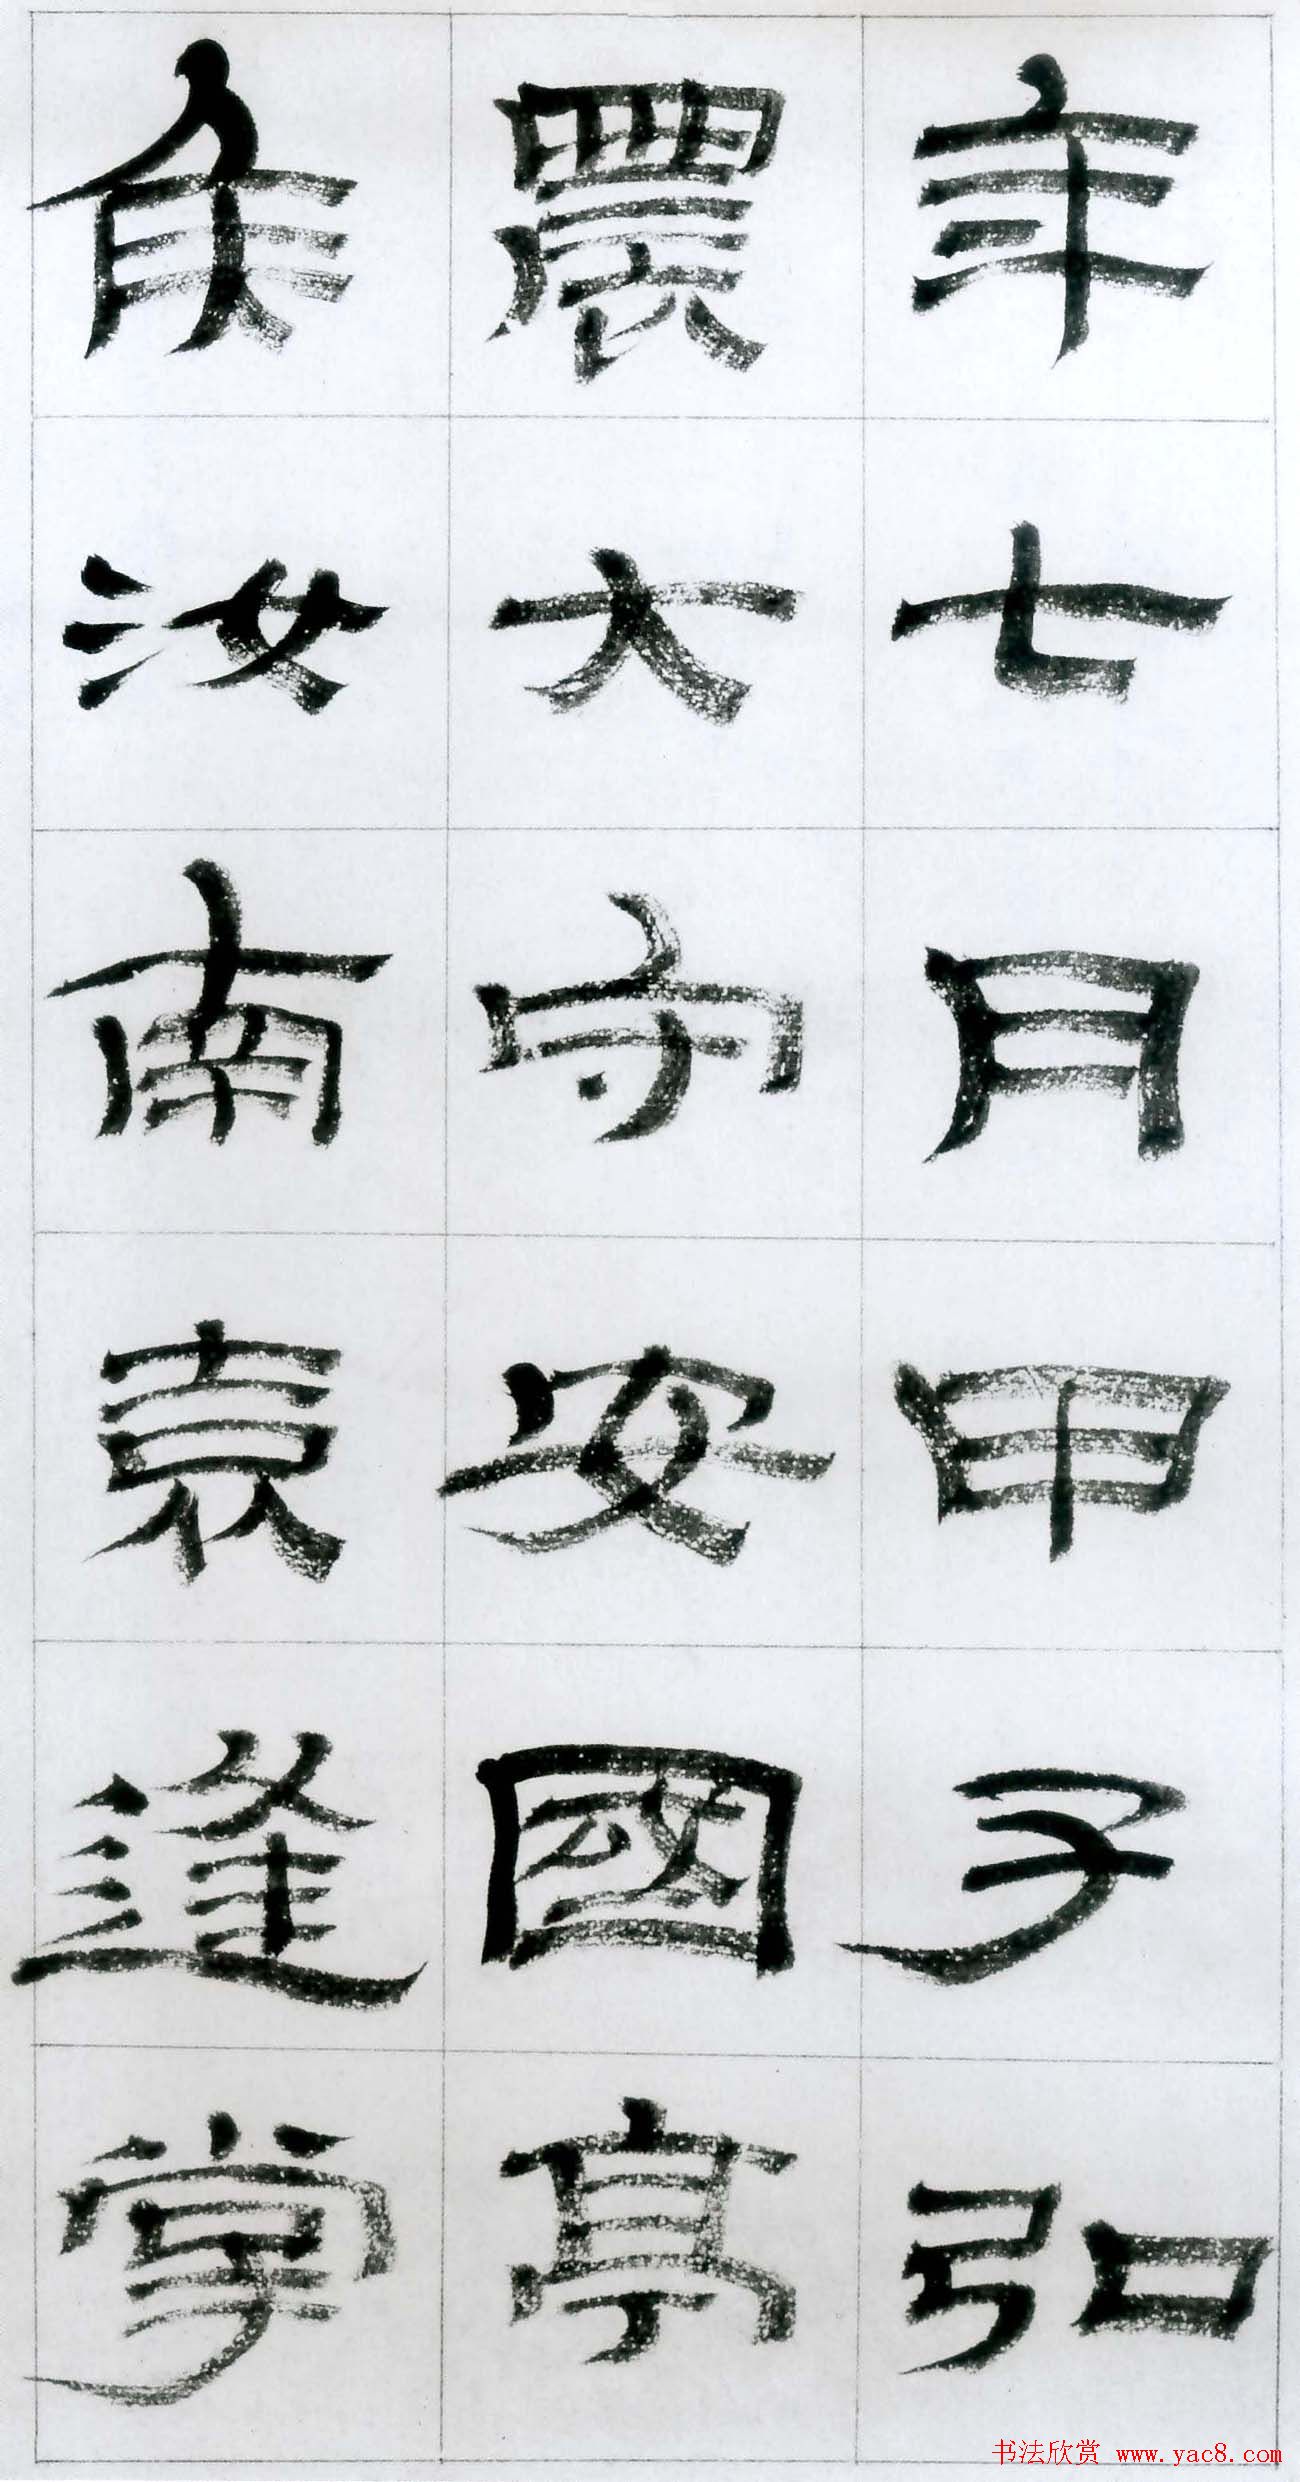 年七月甲子弘
農大守安國亭
侯汝南袁逢掌
书法欣赏 www.yac8.com